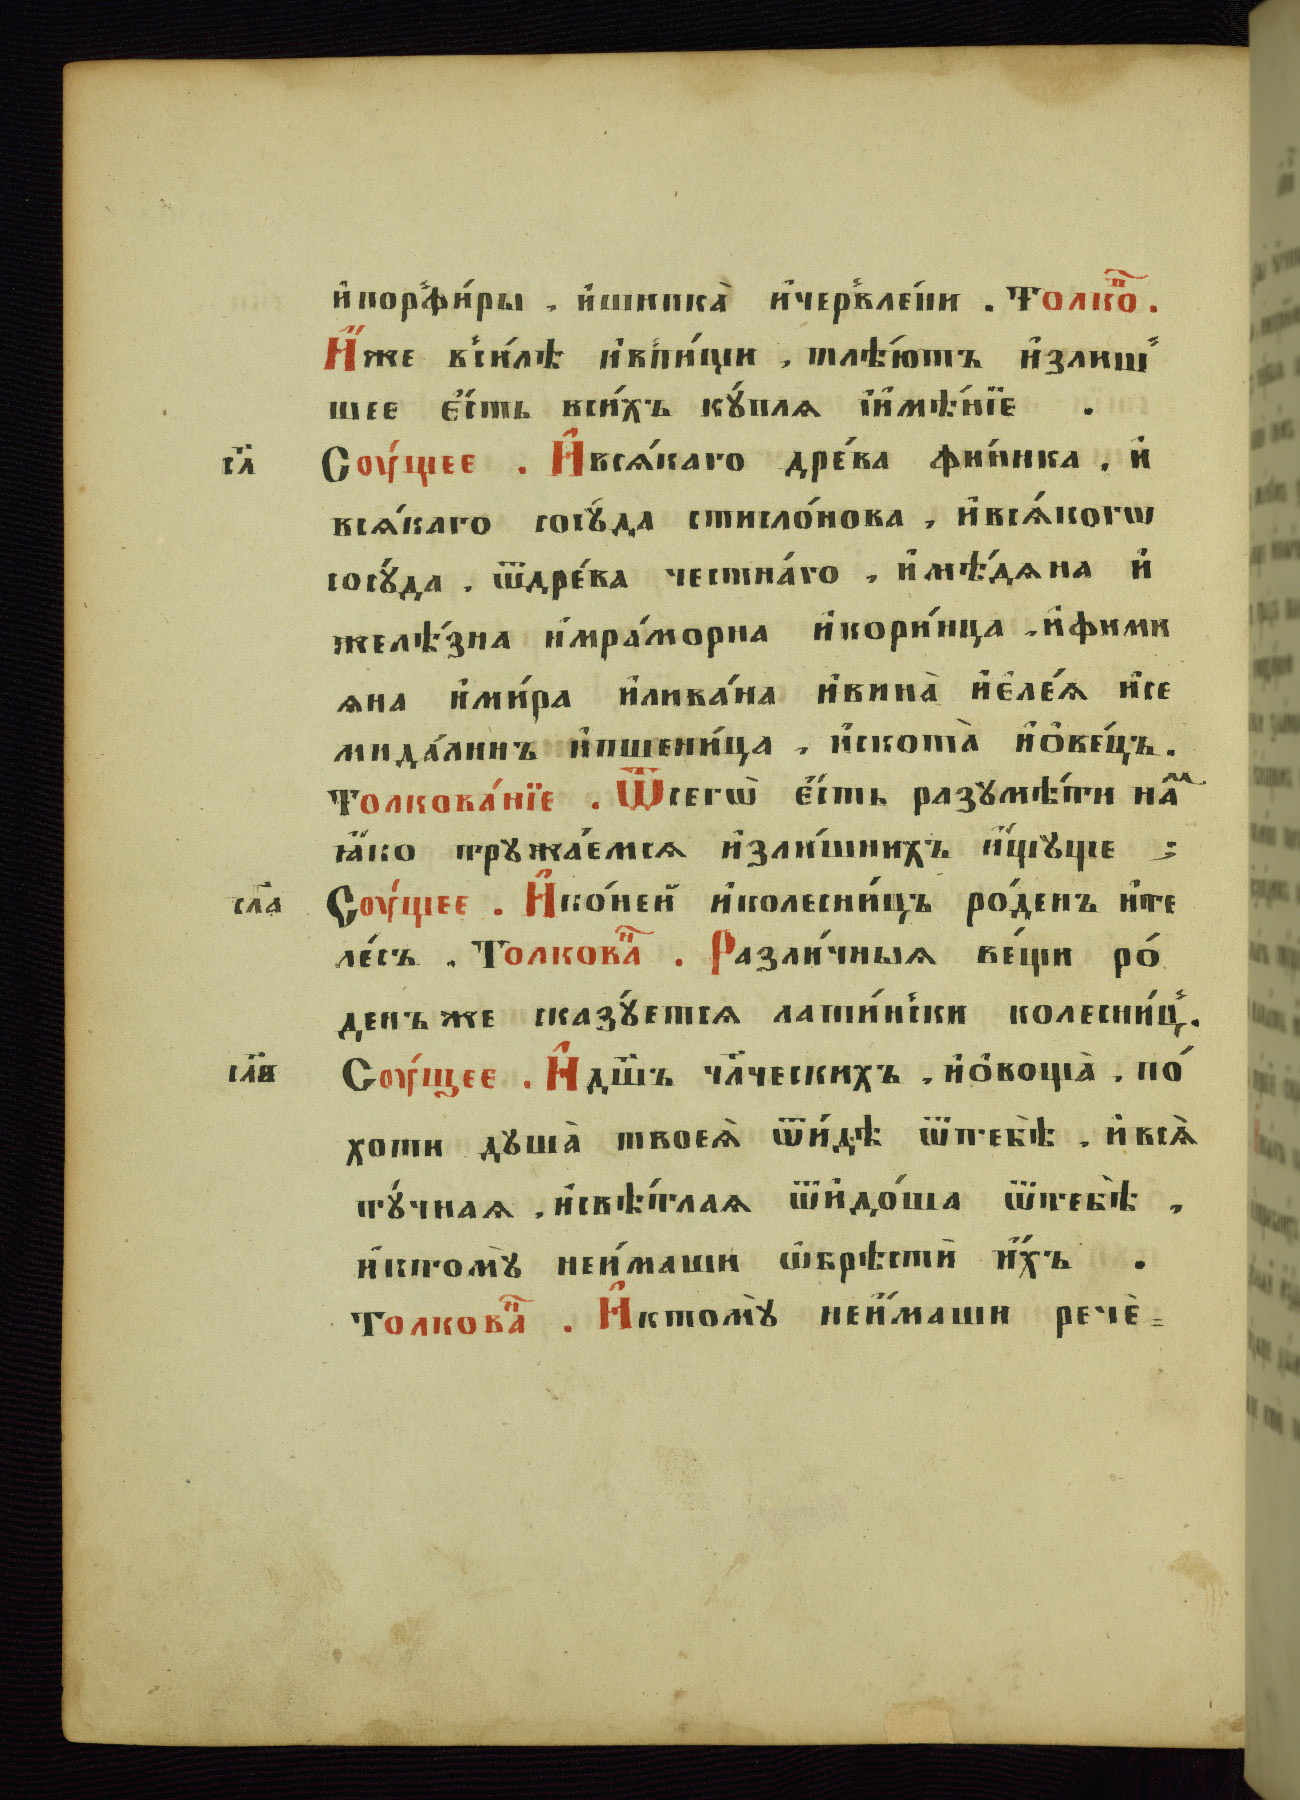 и҆порѳи́ры , и҆шипка̀ и҆червле́ни . Толкоⷩ҇ .
И҆́же всилѣ и҆впи́щи , тлѣ́ютъ и҆злиш
шее є҆́сть вси́хъ кꙋ́плѧ и҆и҆мѣ́нїе .
сл҃ Соу́щее . И҆всѧ́каго дре́ва фиѵ́ника , и҆
всѧ́каго сосꙋ́да стисло́нова , и҆всѧ́когѡ
сосꙋ́да , ѿдре́ва честна́го , и҆мѣ́дѧна и҆
желѣ́зна и҆мра́морна и҆кори́нца , и҆фими
ѧна и҆ми́ра и҆лива́на и҆вина̀ и҆є҆ле́ѧ и҆се
мида́линъ и҆пшени́ца , и҆скота̀ и҆ѻ҆ве́цъ .
Толкова́нїе . Ѿсегѡ̀ є҆́сть разꙋмѣ́ти на́ⷨ
ꙗ҆́ко трꙋжа́емсѧ и҆зли́шнихъ и҆́щꙋще ;
сл҃а Соу́щее . И҆ко́ней и҆колесни́цъ ро́денъ и҆те
ле́съ . Толковаⷩ҇ . Разли́чныѧ ве́щи ро́
денъже сказꙋ́етсѧ лати́нски колесни́ц .
сл҃в Соу́щее . И҆дш҃ъ чл҃ческихъ , и҆ѻ҆воща̀ , по́
хоти дꙋша̀ твоеѧ̀ ѿи́дѣ ѿтебѣ̀ , и҆всѧ̀
тꙋ́чнаѧ , и҆свѣ́тлаѧ ѿи҆до́ша ѿтебѣ̀ ,
и҆ктомꙋ̀ неи́маши ѡ҆брѣстѝ и҆́хъ .
Толковаⷩ҇ . И҆ктомꙋ̀ неи҆́маши речѐ